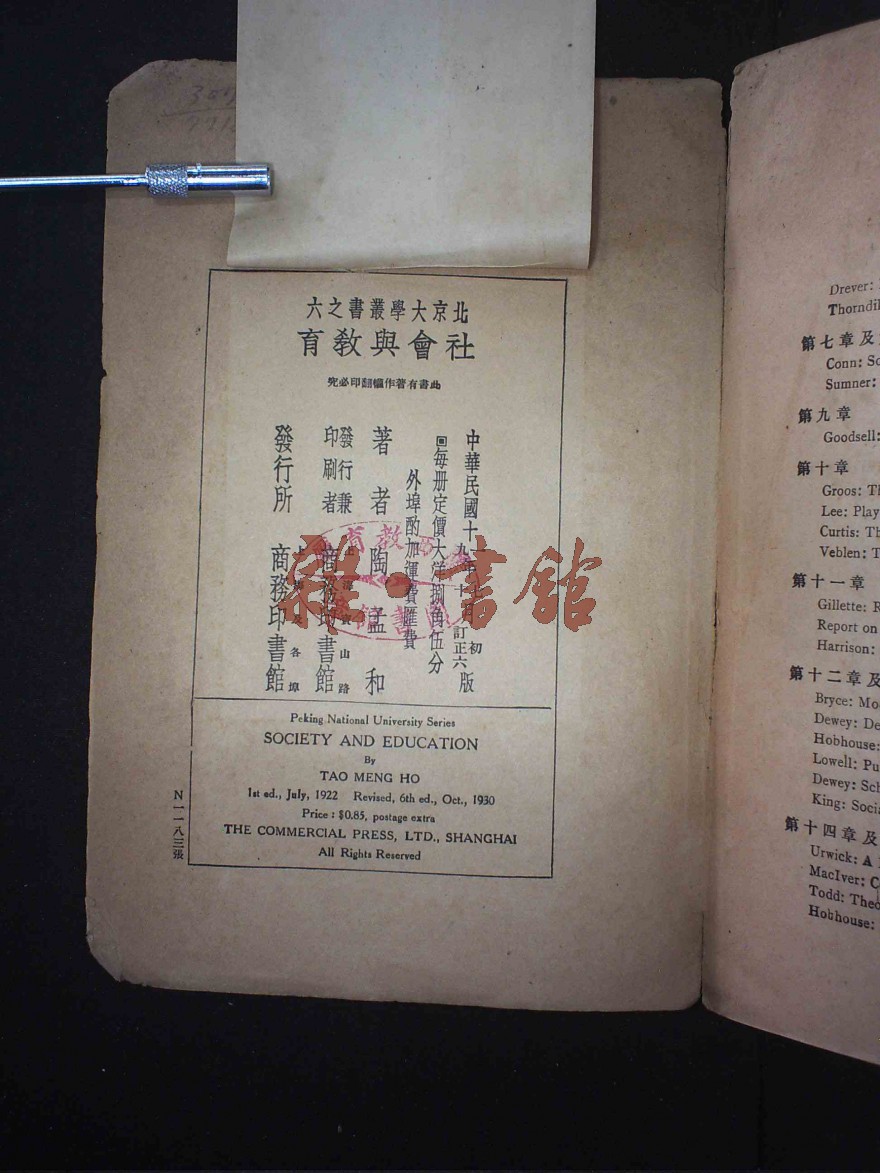 北京大學叢書之六
社會與教育
此書有著作權翻印必究
每册定價大洋捌角伍分
外埠酌加運費匯費
著者 陶孟和
發行兼印刷者 商務印書館
發行所 商務印書館
上海及各埠
雜·書館
Peking National University Series
SOCIETY AND EDUCATION
By
TAO MENG HO
1st ed., July, 1922 Revised, 6th ed., Oct., 1930
Price : $0.85, postage extra
THE COMMERCIAL PRESS, LTD., SHANGHAI
All Rights Reserved
N一一八三張
Drever:
第七章及
Conn:
Sumner:
第九章
Goodsell:
第十章
Groos:
Lee: Play
Curtis:
Veblen:
第十一章
Gillette:
Report on
Harrison:
第十二章及
Bryce:
Dewey:
Hobhouse:
Lowell:
Dewey:
King:
第十四章及
Urwick: A
MacIver:
Todd:
Hobhouse: